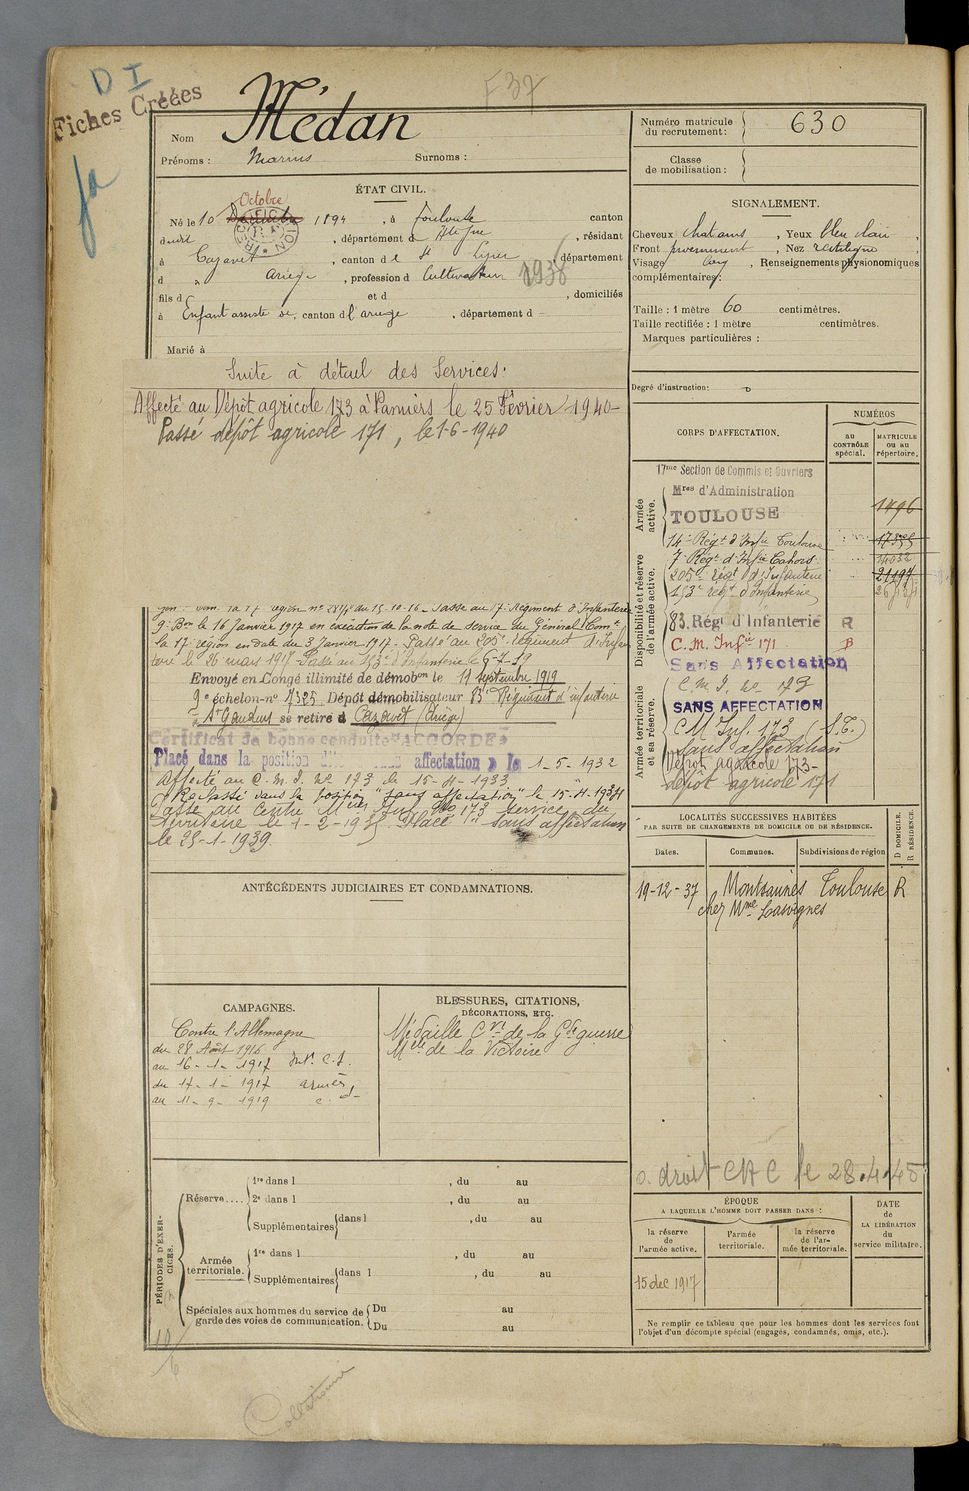 D I
F 37
Fiches Créées
fa
Nom Médan
Prénoms : Marius Surnoms :
ÉTAT CIVIL.
Octobre
Né le 10 1894, à Toulouse canton
dudit, département d Hte Gne, résidant
à Cazavet, canton d e St Lizier, département
d " Ariège, profession d Cultivateur 1938
fils d et d, domiciliés
à Enfant assisté de, canton d l'ariège, département d
Marié à
Suite à détail des Services :
Affecté au Dépôt agricole 173 à Pamiers le 25 Février 1940-
Passé dépôt agricole 171, le 1-6-1940
région nº du 15-10-16 - Passé au 7e Régiment d'Infanterie
9e Bon le 16 Janvier 1917 en exécution de la note de service du Général Comt
la 17e région en date du 3 Janvier 1917 - Passé au 205e régiment d'Infan
terie le 26 mars 1917 - Passé au 153e d'Infanterie le 6-7-19
Envoyé en Congé illimité de démobon le 11 septembre 1919
9e échelon-no 7325 Dépôt démobilisateur 83e Régiment d'infanterie
à St Gaudens se retire à Cazavet (Ariège)
Certificat de bonne conduite "ACCORDÉ"
Placé dans la position affectation » le 1-5-1932
Affecté au C. M. I. no 173 le 15-4-1933
Repassé dans la position "sans affectation" le 15-4-1934
Passé au Centre Mre Inf. No 173 service du
territoire le 1-2-1935. Placé "sans affectation
le 25-1-1939.
ANTÉCÉDENTS JUDICIAIRES ET CONDAMNATIONS.
CAMPAGNES.
Contre l'Allemagne
du 28 Août 1916
au 16-1-1917 Intr. C. S.
du 17-1-1917 armées
au 11-9-1919 c. d-
BLESSURES, CITATIONS,
DÉCORATIONS, ETC.
Médaille Cve de la Gde guerre
Mlle de la Victoire
PÉRIODES D'EXERCICES.
Réserve....
1re dans l, du au
2e dans l, du au
Supplémentaires dans l, du au
Armée territoriale.
1re dans l, du au
Supplémentaires dans l, du au
Spéciales aux hommes du service de garde des voies de communication.
Du au
Du au
Numéro matricule
du recrutement : 630
Classe
de mobilisation :
SIGNALEMENT.
Cheveux chatains, Yeux bleu clair,
Front proeminent, Nez rectiligne
Visage long, Renseignements physionomiques
complémentaires :
Taille : 1 mètre 60 centimètres.
Taille rectifiée : 1 mètre centimètres.
Marques particulières :
Degré d'instruction : 0
CORPS D'AFFECTATION.
NUMÉROS
au CONTRÔLE spécial.
MATRICULE ou au répertoire.
Armée active.
17me Section de Commis et Ouvriers
Mres d'Administration
TOULOUSE 1796
Disponibilité et réserve de l'armée active.
14e Régt d'Infie Toulouse
7e Régt d'Infie Cahors 14032
205e régt d'Infanterie 21197
153e regt d'Infanterie
83. Régt d'Infanterie R
C. M. Infie 171 B
Sans Affectation
Armée territoriale et sa réserve.
C. M. I. no 173
SANS AFFECTATION
C M Inf. 173 (S.T.)
sans affectation
Dépôt agricole 173-
dépôt agricole 171
LOCALITÉS SUCCESSIVES HABITÉES
PAR SUITE DE CHANGEMENTS DE DOMICILE OU DE RÉSIDENCE.
Dates. Communes. Subdivisions de région
D DOMICILE.
R RÉSIDENCE.
19-12-37 Montsaunès Toulouse R
chez Mme Lasvignes
o. droit CAC le 28.4.45
ÉPOQUE
A LAQUELLE L'HOMME DOIT PASSER DANS :
la réserve de l'armée active.
l'armée territoriale.
la réserve de l'armée territoriale.
DATE de LA LIBÉRATION du service militaire.
15 dec 1917
Ne remplir ce tableau que pour les hommes dont les services font
l'objet d'un décompte spécial (engagés, condamnés, omis, etc.).